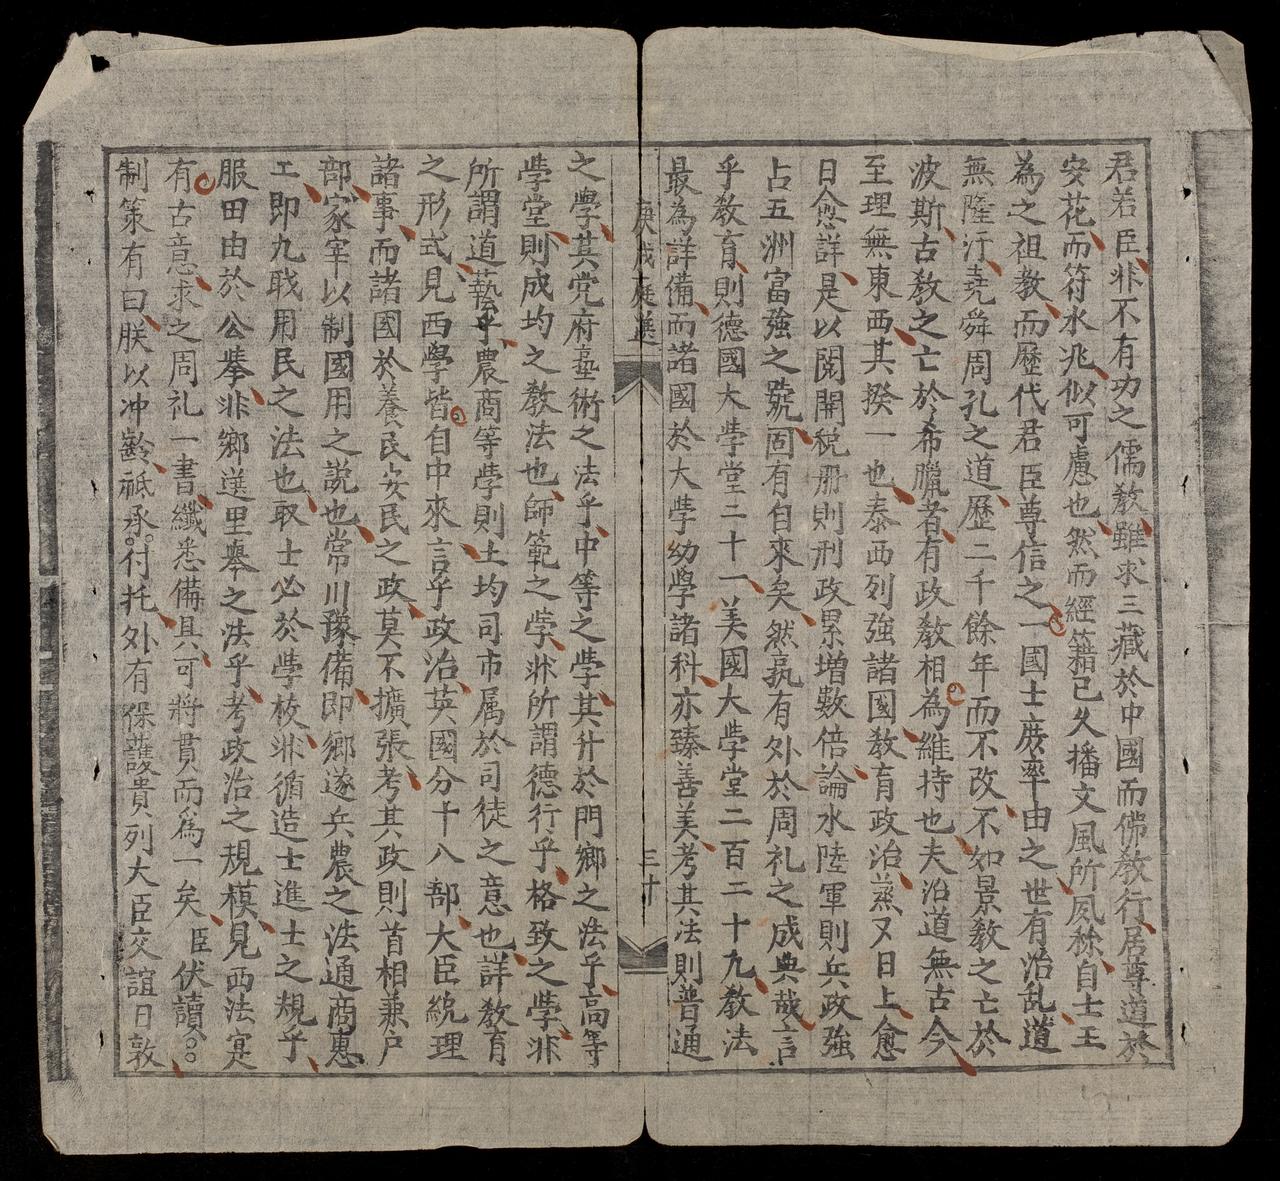 君若臣非不有功之儒教雖求三藏於中國而佛教行居尊道於
安花而符水兆似可慮也然而經籍已久播文風所夙秾自士王
為之祖教而歷代君臣尊信之一國士庶率由之世有治乱道
無隆汙堯舜周孔之道歷二千餘年而不改不如景教之亡於
波斯古教之亡於希臘者有政教相為維持也夫治道無古今
至理無東西其揆一也泰西列強諸國教育政治蒸又日上愈
日愈詳是以開開税册則刑政累增數倍論水陸軍則兵政強
占五洲富強之號固有自來矣然孰有外於周礼之成典哉言
乎教育則德國大學堂二十一美國大學堂二百二十九教法
最為詳備而諸國於大學幼學諸科亦臻善美考其法則普通
庚戌庭選
三十
之學其党府塾術之法乎中等之學其升於門鄉之法乎高等
學堂則成均之教法也師範之學非所謂德行乎格致之學非
所謂道藝乎農商等學則土均司市属於司徒之意也詳教育
之形式見西學皆自中來言乎政治英國分十八部大臣統理
諸事而諸國於養民安民之政莫不擴張考其政則首相兼户
部家宰以制國用之説也常川豫備即鄉遂兵農之法通商惠
工即九職用民之法也取士必於學校非循造士進士之規乎
服田由於公舉非鄉選里舉之法乎考政治之規模見西法寔
有古意求之周礼一書纖悉備具可將貫而為一矣臣伏讀
制策有曰朕以冲齡祗承付托外有保護貴列大臣交誼日敦